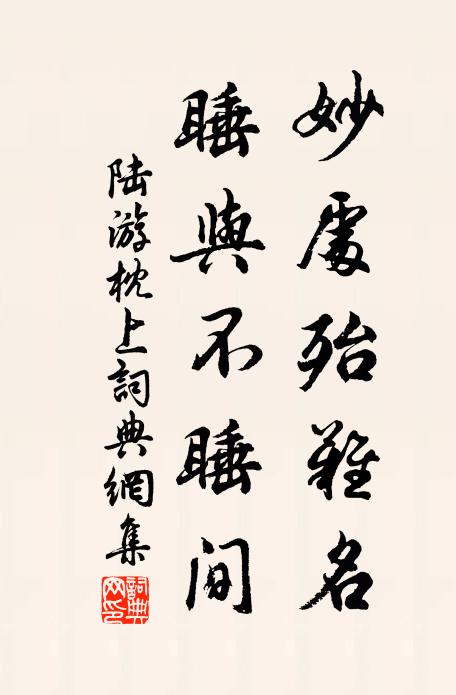 妙處殆難名
睡與不睡間
陸游枕上詞典網集
詞典网印